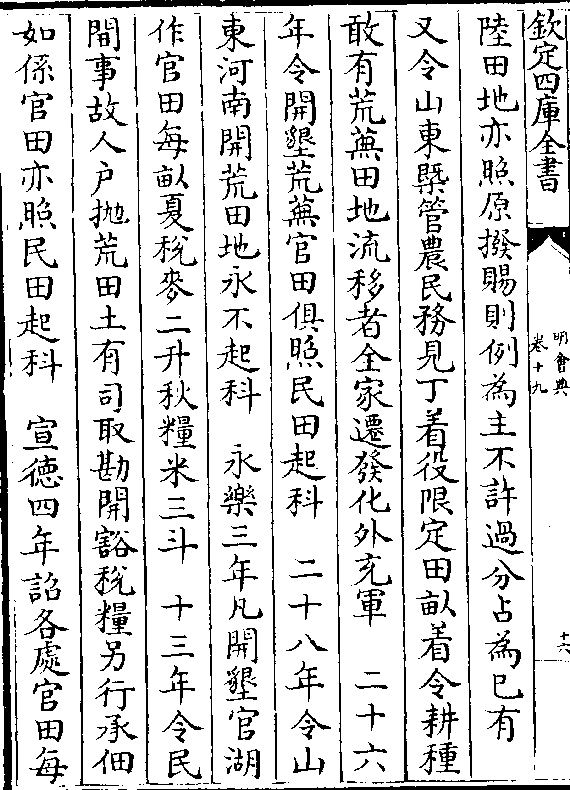 欽定四庫全書
明會典
卷十九
十六
陸田地亦照原撥賜則例為主不許過分占為已有
又令山東槩管農民務見丁着役限定田畝着令耕種
敢有荒蕪田地流移者全家遷發化外充軍　二十六
年令開墾荒蕪官田俱照民田起科　二十八年令山
東河南開荒田地永不起科　永樂三年凡開墾官湖
作官田每畝夏稅麥二升秋糧米三斗　十三年令民
間事故人戶拋荒田土有司取勘開豁稅糧另行承佃
如係官田亦照民田起科　宣德四年詔各處官田每